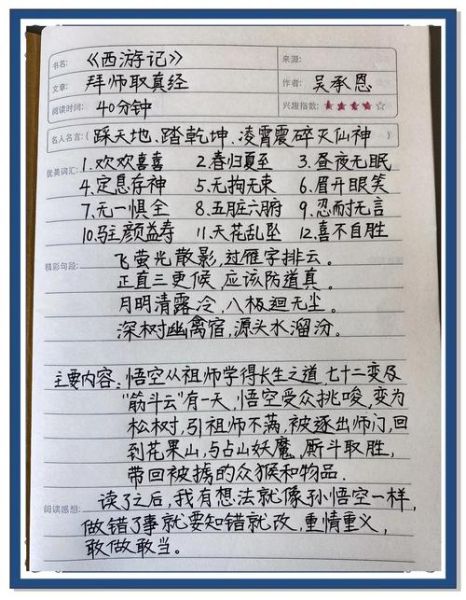 书名: 《西游记》 来源:
文章: 拜师取真经 作者: 吴承恩
阅读时间: 40分钟 兴趣指数: ★★★★☆
名人名言:( 踩天地、踏乾坤、凌霄震碎灭仙神 )
优美词汇: 1.欢欢喜喜 2.春归夏至 3.昼夜无眠
4.定息存神 5.无拘无束 6.眉开眼笑
7.无一惧全 8.五脏六腑 9.忍耐无言
10.驻颜益寿 11.天花乱坠 12.喜不自胜
飞萤光散影,过雁字排云。
精彩句段: 正直三更候,应该防道真。
月明清露冷,八极迥无尘。
深树幽禽宿,源头水溜汾。
主要内容:悟空从祖师学得长生之道,七十二变及
"筋斗云"有一天,悟空受众挑唆,变为
松树,引祖师不满,被逐出师门,回
到花果山,与占山妖魔,厮斗取胜,
带回被掳的众猴和物品.
阅读感想: 读了之后,我有想法就像孙悟空一样,
做错了事就要知错就改,重情重义,
敢做敢当。